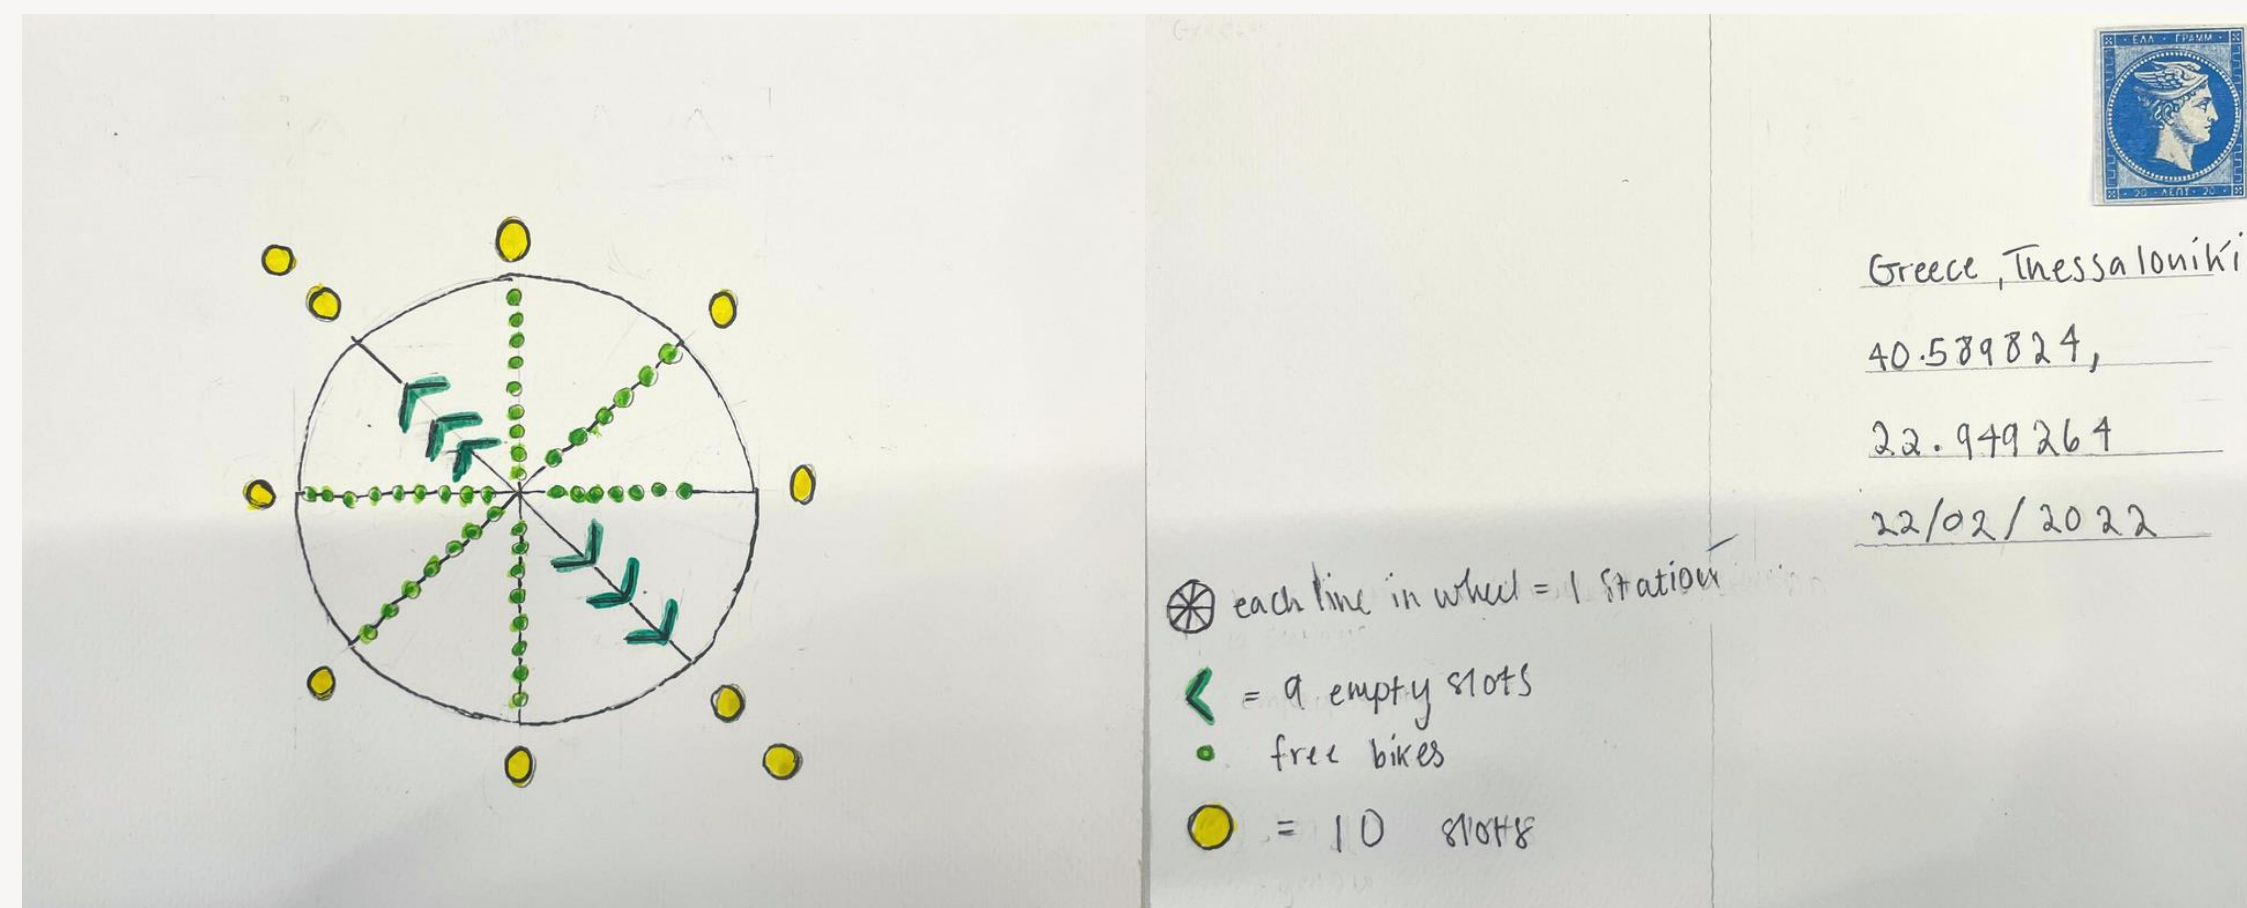 ΕΛΛ · ΓΡΑΜΜ
20 · ΛΕΠΤ · 20
Greece, Thessaloniki
40.589824,
22.949264
22/02/2022
each line in wheel = 1 station
= 9 empty slots
free bikes
= 10 slots